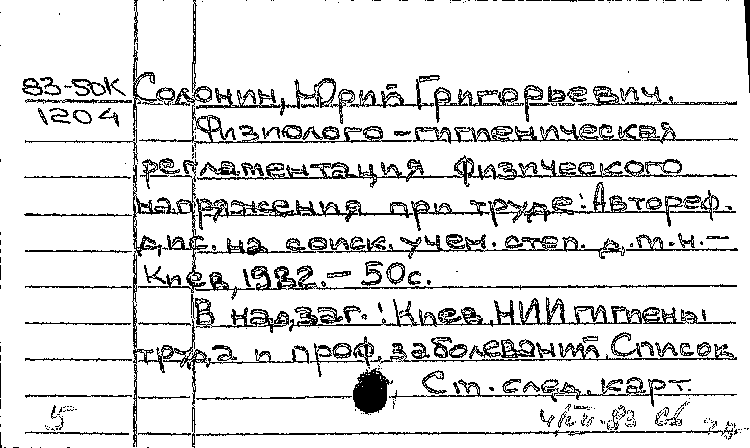 83-50к Солонин, Юрий Григорьевич.
1204 Физиолого-гигиеническая
регламентация физического
напряжения при труде: Автореф.
дис. на соиск. учен. степ. д.м.н.-
Киев, 1982.- 50с.
В надзаг.: Киев. НИИ гигиены
труда и проф. заболеваний. Список
Ст. след. карт.
5